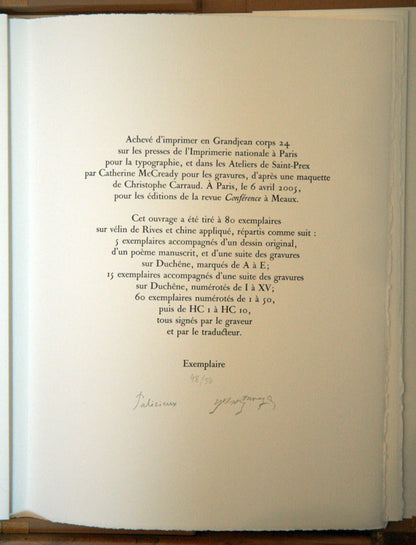 Achevé d'imprimer en Grandjean corps 24
sur les presses de l'Imprimerie nationale à Paris
pour la typographie, et dans les Ateliers de Saint-Prex
par Catherine McCready pour les gravures, d'après une maquette
de Christophe Carraud. À Paris, le 6 avril 2005,
pour les éditions de la revue Conférence à Meaux.
Cet ouvrage a été tiré à 80 exemplaires
sur vélin de Rives et chine appliqué, répartis comme suit :
5 exemplaires accompagnés d'un dessin original,
d'un poème manuscrit, et d'une suite des gravures
sur Duchêne, marqués de A à E ;
15 exemplaires accompagnés d'une suite des gravures
sur Duchêne, numérotés de I à XV ;
60 exemplaires numérotés de 1 à 50,
puis de HC 1 à HC 10,
tous signés par le graveur
et par le traducteur.
Exemplaire
48/50
Palézieux